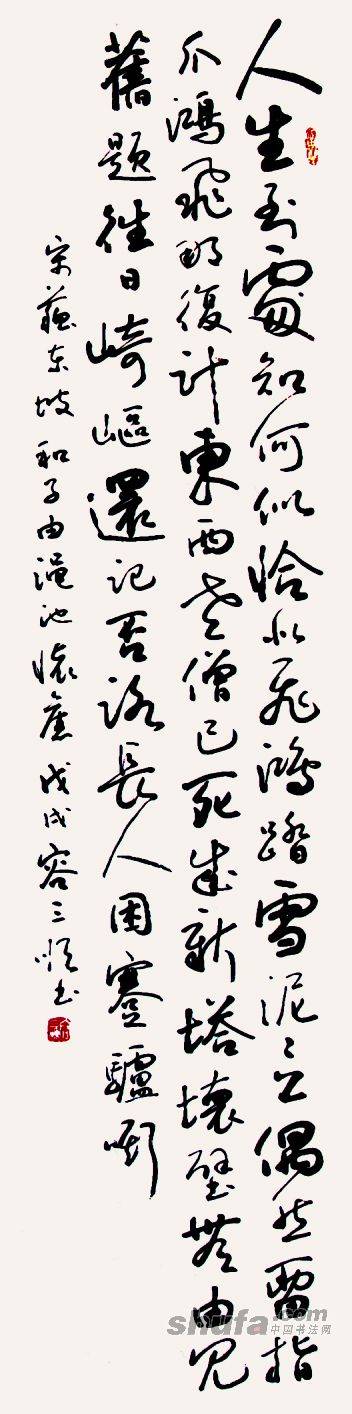 人生到處知何似恰似飛鴻踏雪泥々上偶然留指
爪鴻飛那復計東西老僧已死成新塔壞壁無由見
舊題往日崎嶇還記否路長人困蹇驢嘶
宋蘇東坡和子由澠池懷舊戊戌容三順书
shufa.com
中国书法网